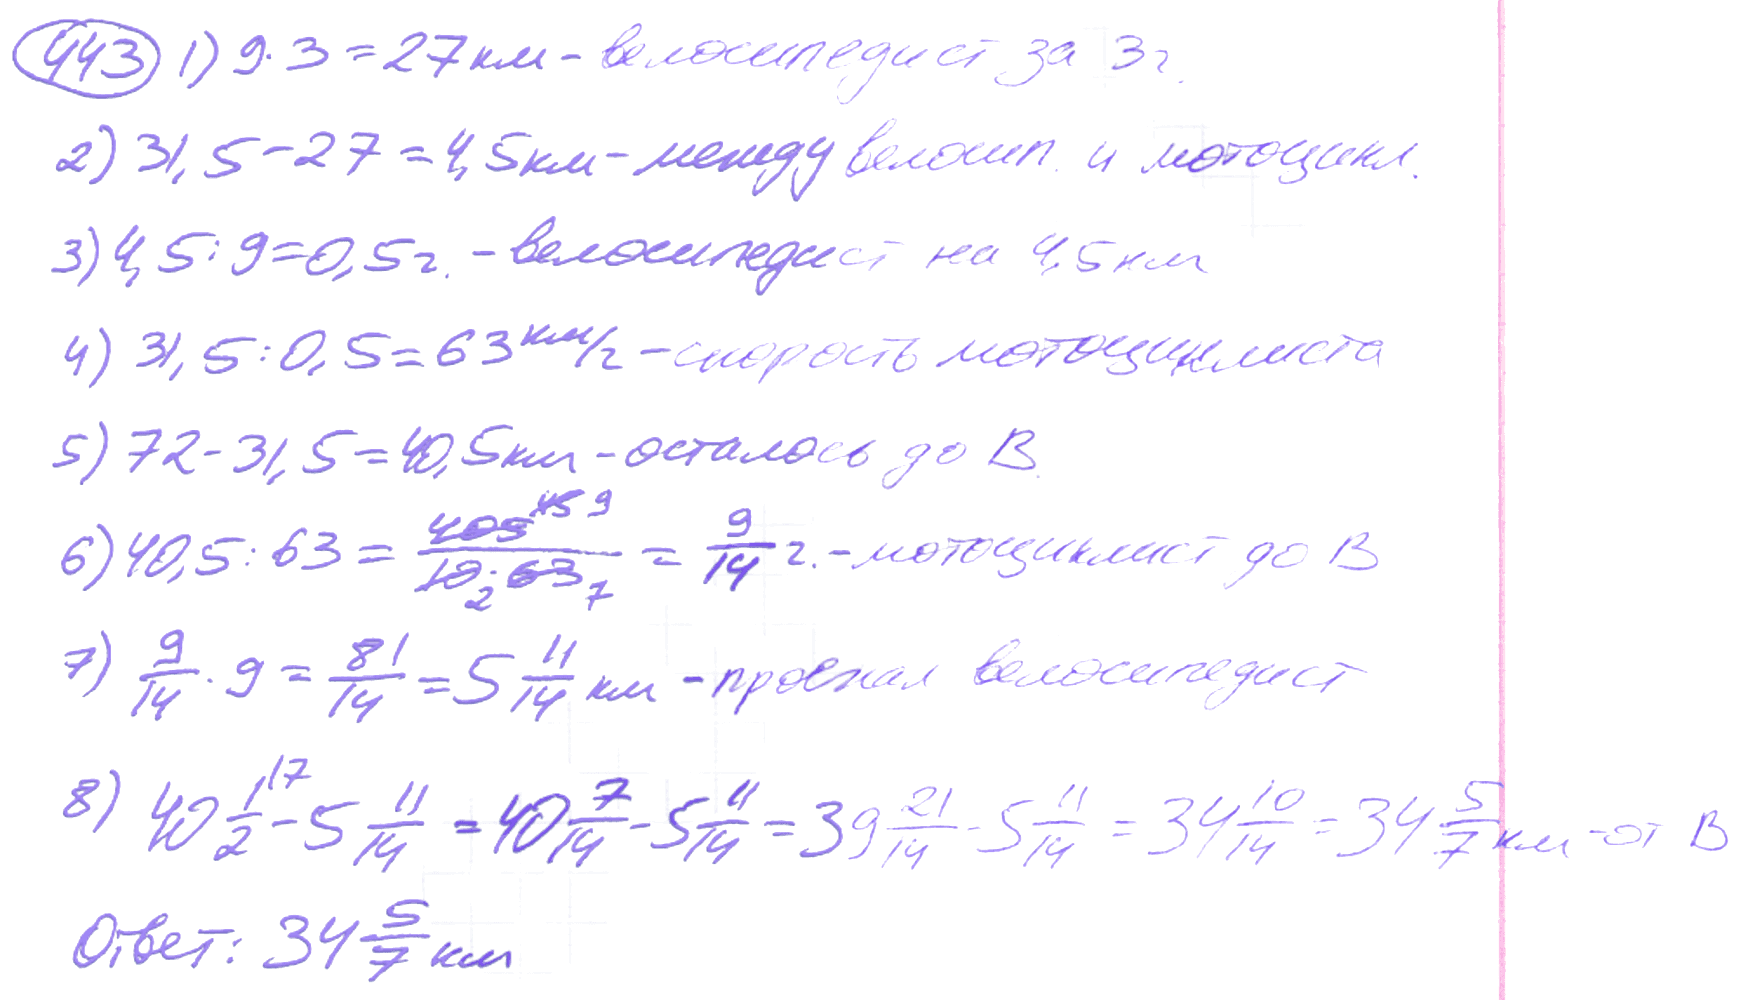 443 1) 9·3=27км-велосипедист за 3г.
2) 31,5-27=4,5км-между велосип. и мотоцикл.
3) 4,5:9=0,5г.-велосипедист на 4,5км
4) 31,5:0,5=63км/г-скорость мотоциклиста
5) 72-31,5=40,5км-осталось до В
6) 40,5:63=405 45 9/10 2·63 7=9/14 г.-мотоциклист до В
7) 9/14·9=81/14=5 11/14 км-проехал велосипедист
8) 40 1/2 17-5 11/14=40 7/14-5 11/14=39 21/14-5 11/14=34 10/14=34 5/7 км-от В
Ответ: 34 5/7 км